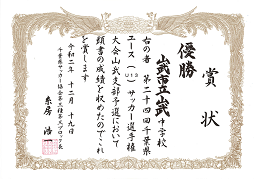 賞状
優勝
山武市立山武中学校
右の者 第二十四回千葉県
ユース（U13）サッカー選手権
大会山武支部予選において
頭書の成績を収めたのでこれ
を賞します
令和二年十二月十九日
千葉県サッカー協会第三種第三ブロック長
糸房 浩一